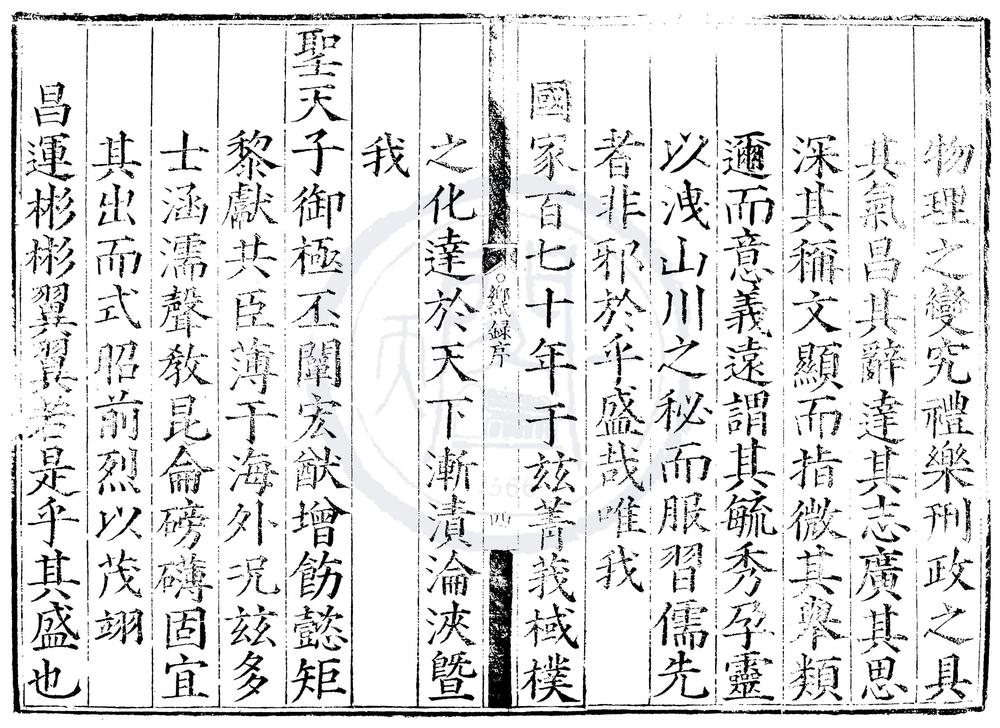 物理之變究禮樂刑政之具
其氣昌其辭達其志廣其思
深其稱文顯而指微其舉類
邇而意義遠謂其毓秀孕靈
以洩山川之秘而服習儒先
者非邪於乎盛哉唯我
國家百七十年于兹菁莪棫樸
鄉試録序
四
之化達於天下漸漬淪浹曁
我
聖天子御極丕闡宏猷增飭懿矩
黎獻共臣薄于海外況兹多
士涵濡聲敎昆侖磅礴固宜
其出而式昭前烈以茂翊
昌運彬彬翼翼若是乎其盛也